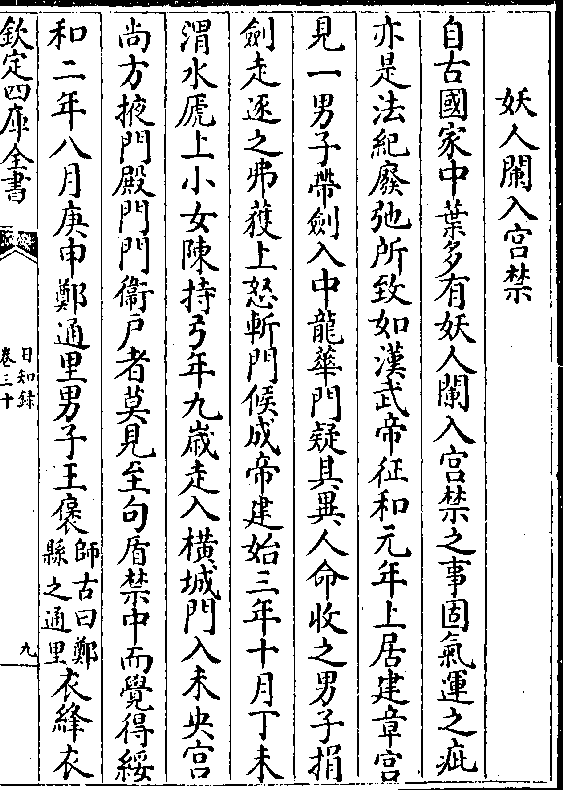 妖人闌入宫禁
自古國家中葉多有妖人闌入宫禁之事固氣運之疵
亦是法紀廢弛所致如漢武帝征和元年上居建章宫
見一男子帶劍入中龍華門疑其異人命收之男子捐
劍走逐之弗獲上怒斬門候成帝建始三年十月丁未
渭水虒上小女陳持弓年九歳走入横城門入未央宫
尚方掖門殿門門衛户者莫見至句盾禁中而覺得綏
和二年八月庚申鄭通里男子王襃師古曰鄭縣之通里衣絳衣
欽定四庫全書
日知録
卷三十
九